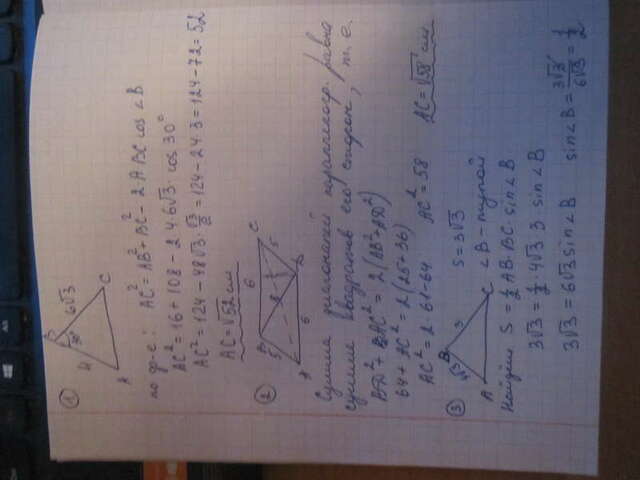 ①
B
4
30°
6√3
A
C
по ф-е: AC² = AB² + BC² - 2 A·BC cos ∠B
AC² = 16 + 108 - 2·4·6√3 · cos 30°
AC² = 124 - 48√3 · √3/2 = 124 - 24·3 = 124 - 72 = 52
AC = √52 см
②
B
6
C
5
8
5
A
6
D
Сумма диагоналей параллелогр. равна
сумме квадратов его сторон, т. е.
BD² + AC² = 2(AB² + AD²)
64 + AC² = 2(25 + 36)
AC² = 2·61 - 64 AC² = 58 AC = √58 см
③
B
4√3
3
A
C
S = 3√3
∠B - тупой
Найдём S = ½ AB·BC sin ∠B
3√3 = ½ 4√3 3 sin ∠B
3√3 = 6√3 sin ∠B sin ∠B = 3√3/6√3 = 1/2